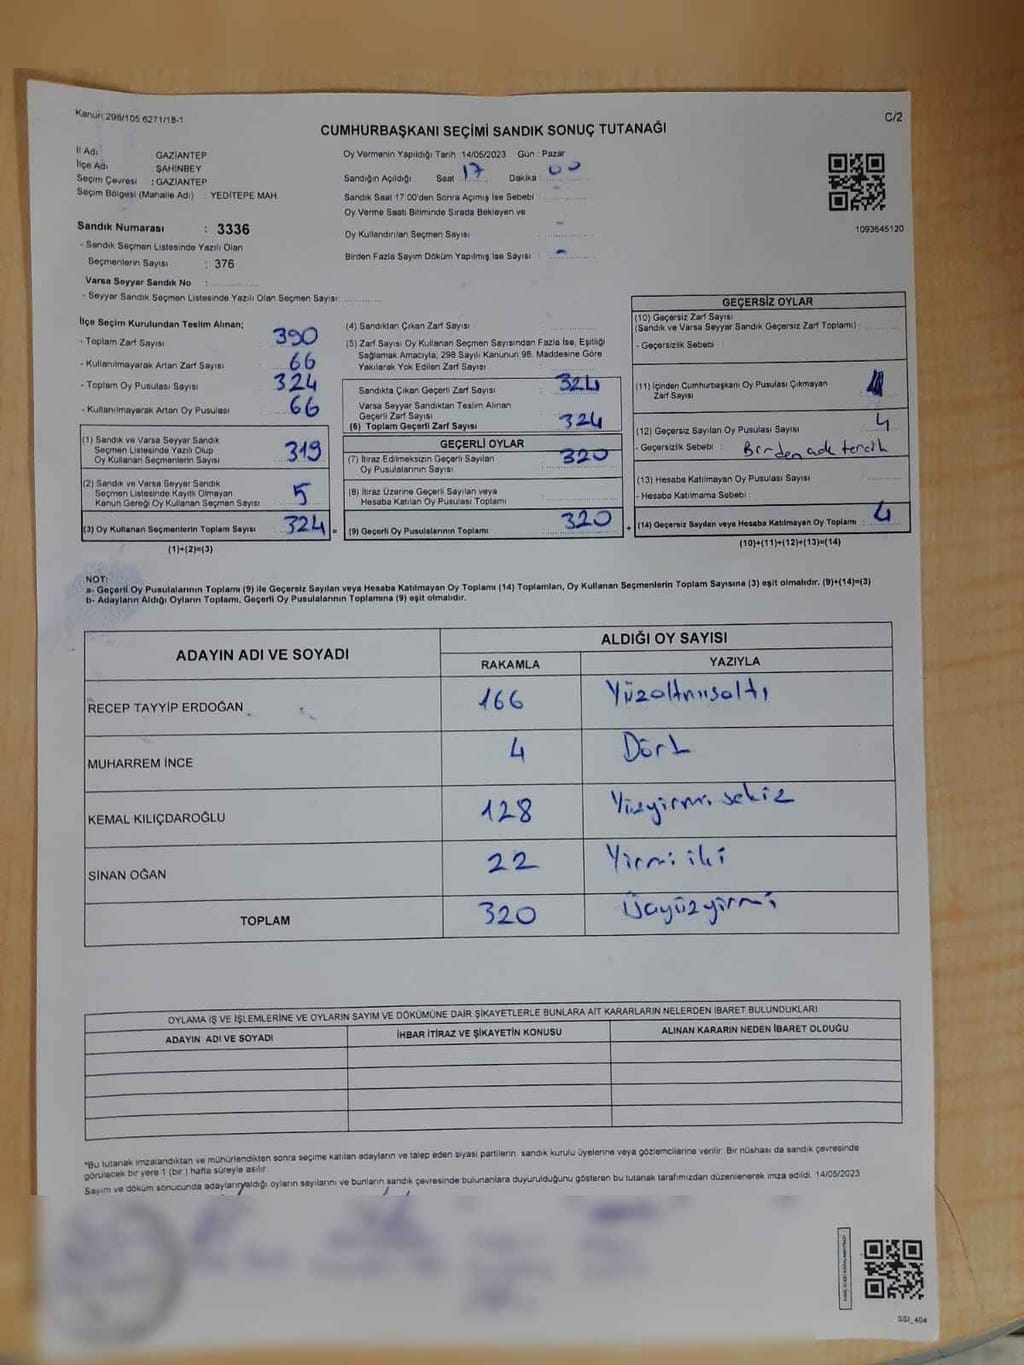 Kanun:298/105,6271/18-1
C/2
CUMHURBAŞKANI SEÇİMİ SANDIK SONUÇ TUTANAĞI
İl Adı : GAZİANTEP
İlçe Adı : ŞAHİNBEY
Seçim Çevresi : GAZİANTEP
Seçim Bölgesi (Mahalle Adı) : YEDİTEPE MAH
Sandık Numarası : 3336
- Sandık Seçmen Listesinde Yazılı Olan
Seçmenlerin Sayısı : 376
Varsa Seyyar Sandık No :
- Seyyar Sandık Seçmen Listesinde Yazılı Olan Seçmen Sayısı:
Oy Vermenin Yapıldığı Tarih :14/05/2023 Gün : Pazar
Sandığın Açıldığı Saat 17 Dakika : 00
Sandık Saat 17:00'den Sonra Açımış İse Sebebi :
Oy Verme Saati Bitiminde Sırada Bekleyen ve
Oy Kullandırılan Seçmen Sayısı : -
Birden Fazla Sayım Döküm Yapılmış İse Sayısı : -
1093645120
İlçe Seçim Kurulundan Teslim Alınan;
- Toplam Zarf Sayısı : 390
- Kullanılmayarak Artan Zarf Sayısı : 66
- Toplam Oy Pusulası Sayısı : 324
- Kullanılmayarak Artan Oy Pusulası : 66
(1) Sandık ve Varsa Seyyar Sandık
Seçmen Listesinde Yazılı Olup
Oy Kullanan Seçmenlerin Sayısı : 319
(2) Sandık ve Varsa Seyyar Sandık
Seçmen Listesinde Kayıtlı Olmayan
Kanun Gereği Oy Kullanan Seçmen Sayısı : 5
(3) Oy Kullanan Seçmenlerin Toplam Sayısı : 324 =
(1)+(2)=(3)
(4) Sandıktan Çıkan Zarf Sayısı :
(5) Zarf Sayısı Oy Kullanan Seçmen Sayısından Fazla İse, Eşitliği
Sağlamak Amacıyla, 298 Sayılı Kanunun 98. Maddesine Göre
Yakılarak Yok Edilen Zarf Sayısı :
Sandıkta Çıkan Geçerli Zarf Sayısı : 324
Varsa Seyyar Sandıktan Teslim Alınan
Geçerli Zarf Sayısı :
(6) Toplam Geçerli Zarf Sayısı : 324
GEÇERLİ OYLAR
(7) İtiraz Edilmeksizin Geçerli Sayılan
Oy Pusulalarının Sayısı : 320
(8) İtiraz Üzerine Geçerli Sayılan veya
Hesaba Katılan Oy Pusulası Toplamı :
(9) Geçerli Oy Pusulalarının Toplamı : 320 +
GEÇERSİZ OYLAR
(10) Geçersiz Zarf Sayısı
(Sandık ve Varsa Seyyar Sandık Geçersiz Zarf Toplamı) :
- Geçersizlik Sebebi :
(11) İçinden Cumhurbaşkanı Oy Pusulası Çıkmayan
Zarf Sayısı :
(12) Geçersiz Sayılan Oy Pusulası Sayısı : 4
- Geçersizlik Sebebi : Birden çok tercih
(13) Hesaba Katılmayan Oy Pusulası Sayısı :
- Hesaba Katılmama Sebebi :
(14) Geçersiz Sayılan veya Hesaba Katılmayan Oy Toplamı : 4
(10)+(11)+(12)+(13)=(14)
NOT:
a- Geçerli Oy Pusulalarının Toplamı (9) ile Geçersiz Sayılan veya Hesaba Katılmayan Oy Toplamı (14) Toplamları, Oy Kullanan Seçmenlerin Toplam Sayısına (3) eşit olmalıdır. (9)+(14)=(3)
b- Adayların Aldığı Oyların Toplamı, Geçerli Oy Pusulalarının Toplamına (9) eşit olmalıdır.
ADAYIN ADI VE SOYADI
ALDIĞI OY SAYISI
RAKAMLA YAZIYLA
RECEP TAYYİP ERDOĞAN 166 Yüzaltmışaltı
MUHARREM İNCE 4 Dört
KEMAL KILIÇDAROĞLU 128 Yüzyirmi sekiz
SİNAN OĞAN 22 Yirmi iki
TOPLAM 320 Üçyüzyirmi
OYLAMA İŞ VE İŞLEMLERİNE VE OYLARIN SAYIM VE DÖKÜMÜNE DAİR ŞİKAYETLERLE BUNLARA AİT KARARLARIN NELERDEN İBARET BULUNDUKLARI
ADAYIN ADI VE SOYADI İHBAR İTİRAZ VE ŞİKAYETİN KONUSU ALINAN KARARIN NEDEN İBARET OLDUĞU
*Bu tutanak imzalandıktan ve mühürlendikten sonra seçime katılan adayların ve talep eden siyasi partilerin sandık kurulu üyelerine veya gözlemcilerine verilir. Bir nüshası da sandık çevresinde
görülecek bir yere 1 (bir ) hafta süreyle asılır.
Sayım ve döküm sonucunda adayların aldığı oyların sayılarını ve bunların sandık çevresinde bulunanlara duyurulduğunu gösteren bu tutanak tarafımızdan düzenlenerek imza edildi. 14/05/2023
SSI_404